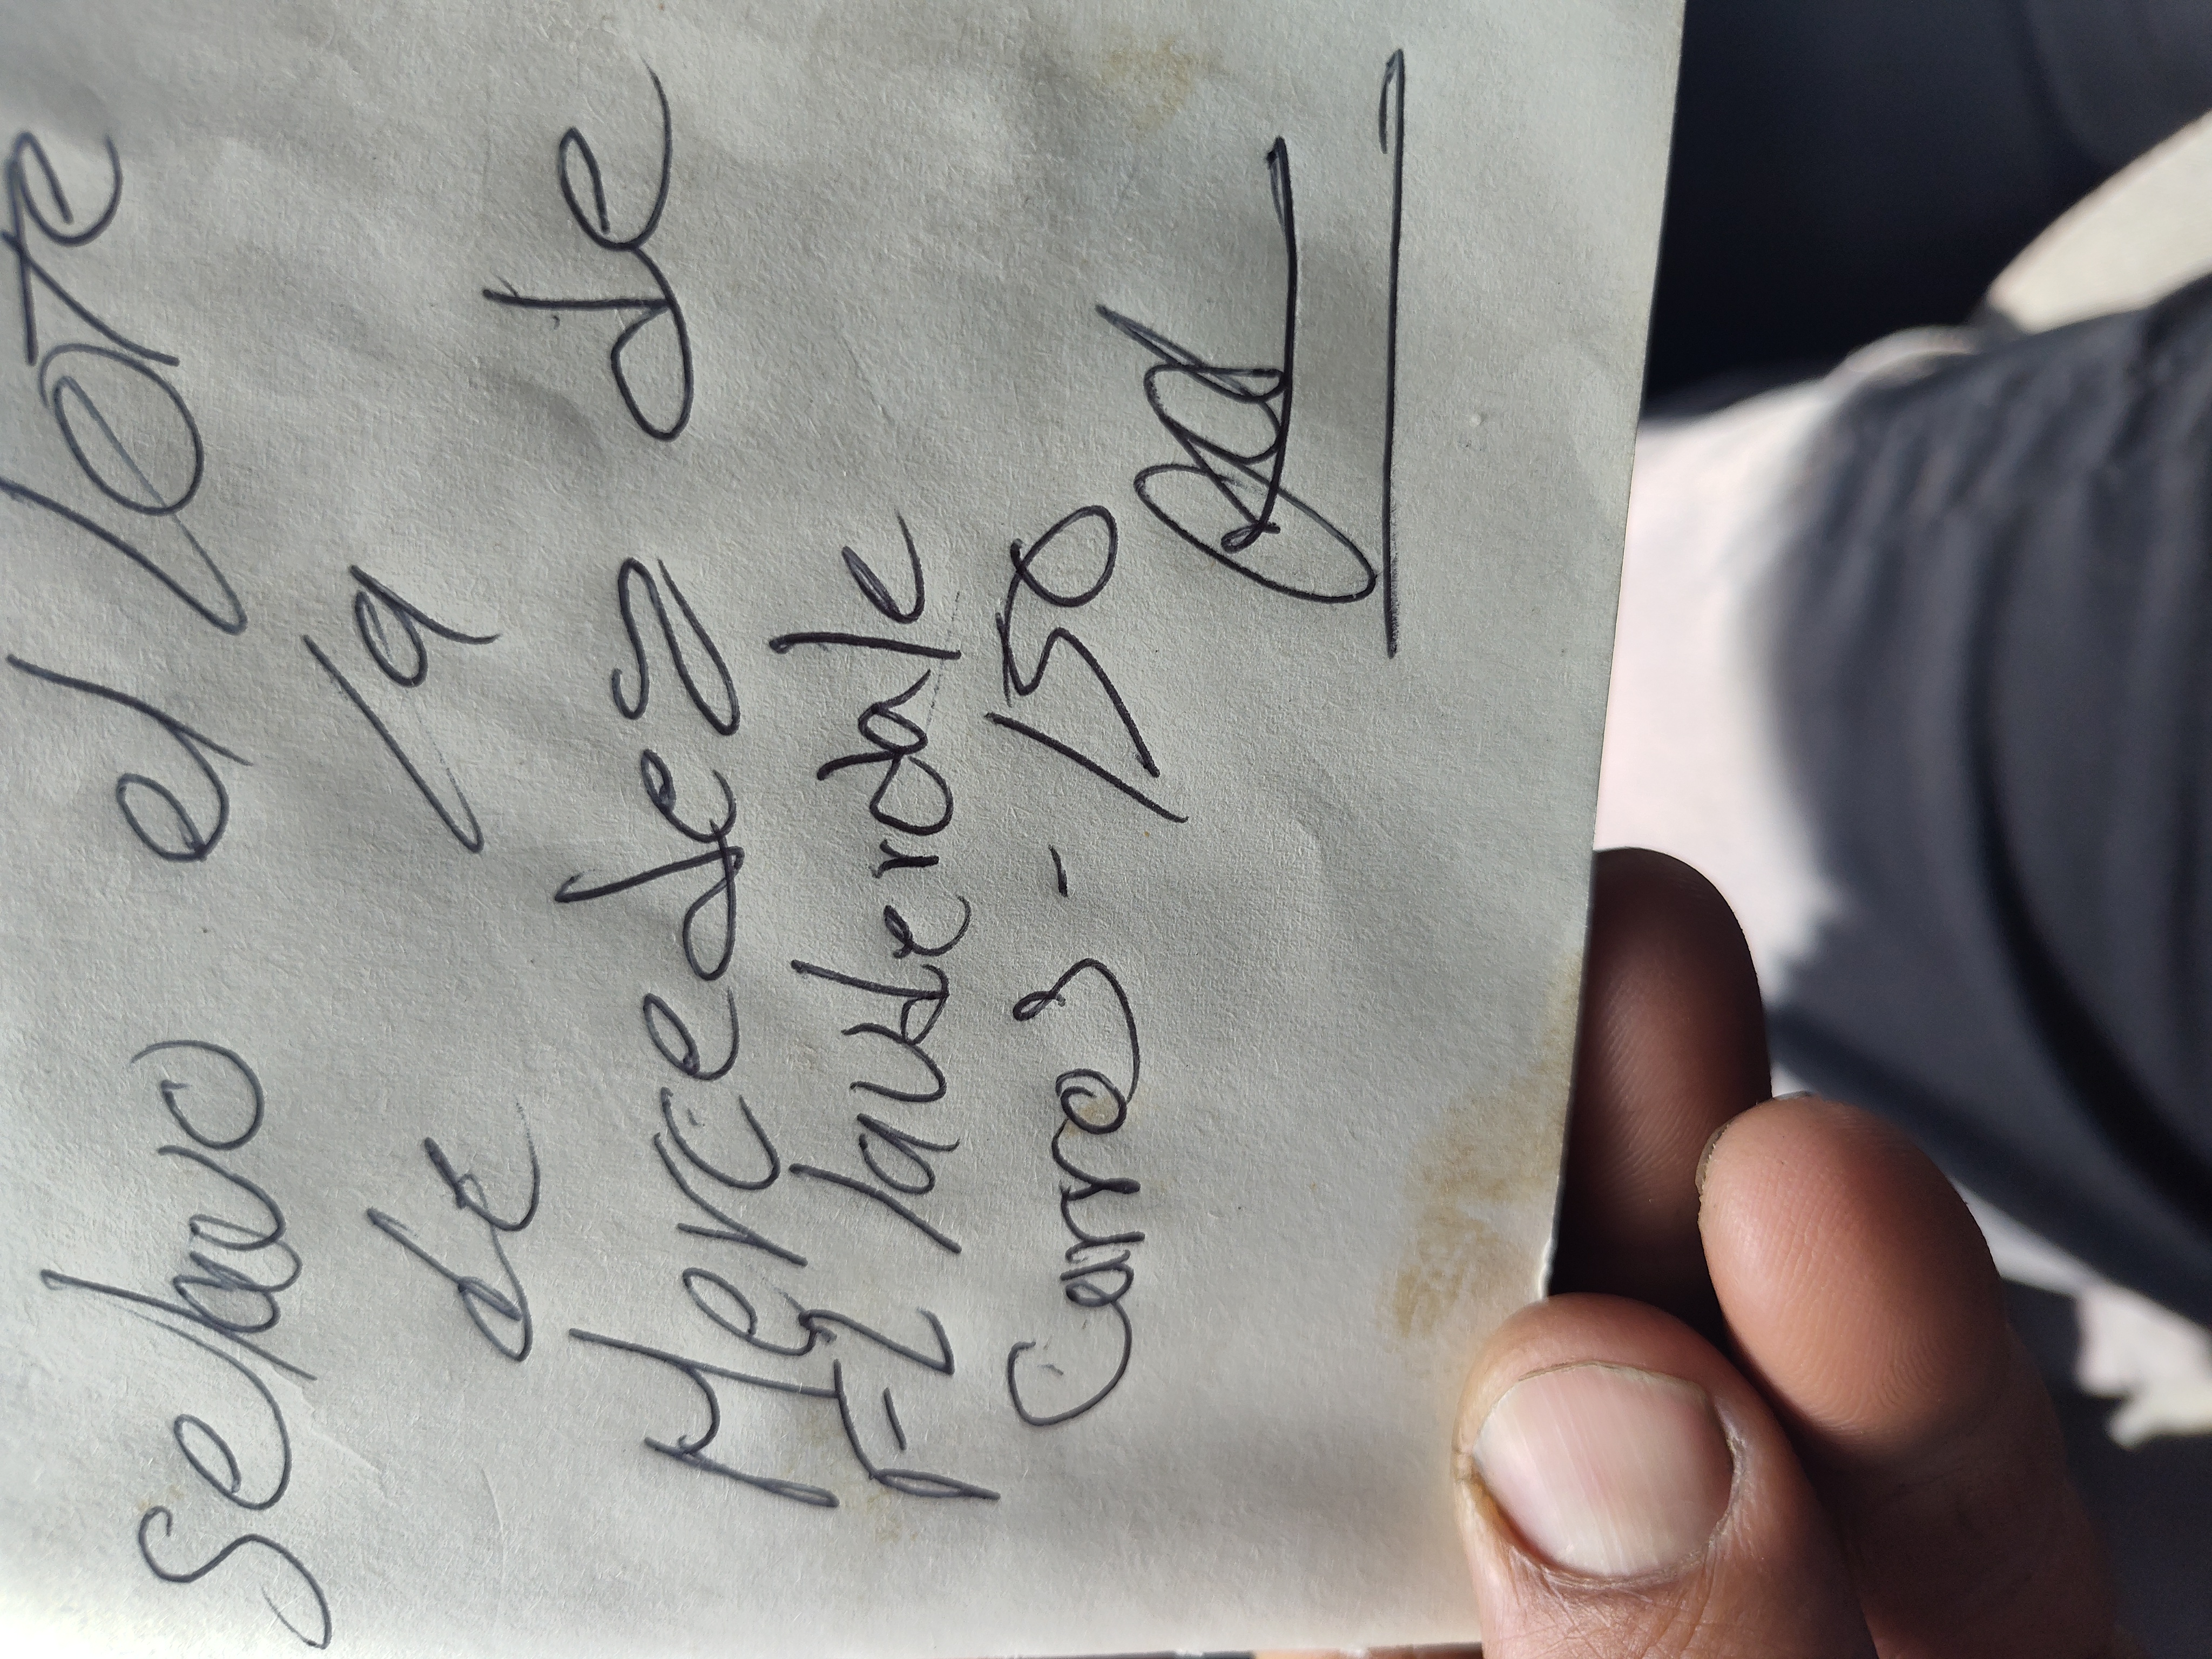 se lavo el lote
de la
Mercedez de
F-Lauderdale
Carros - 150